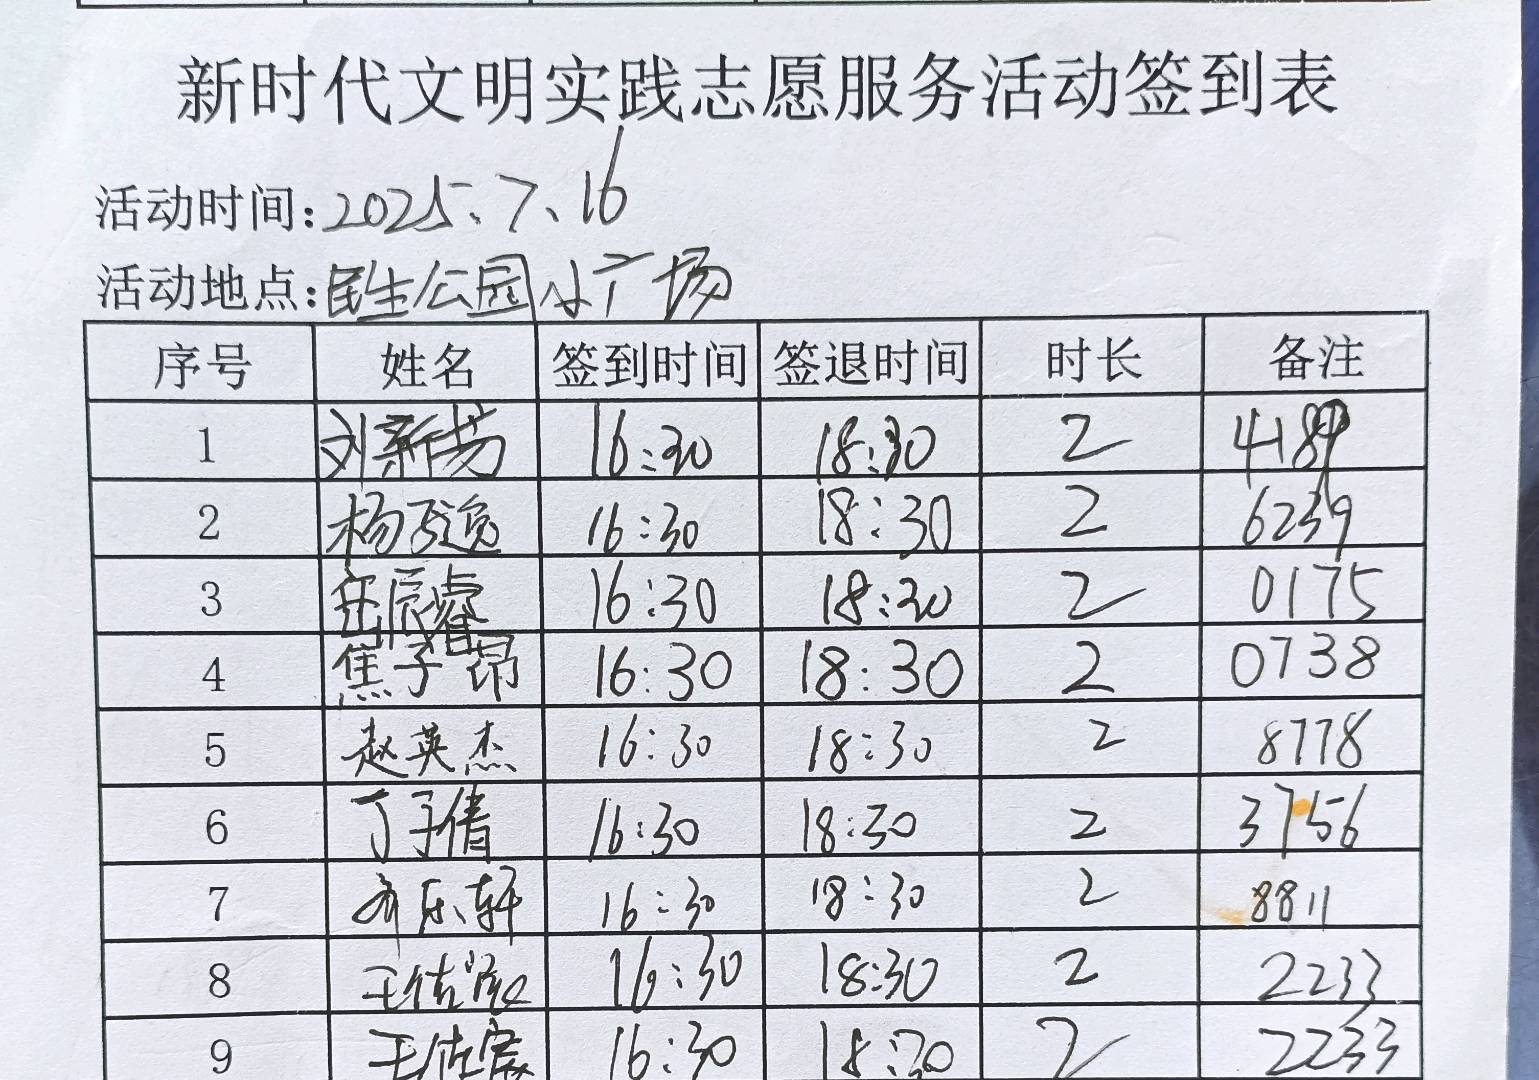 新时代文明实践志愿服务活动签到表
活动时间:2025、7、16
活动地点:民生公园小广场
序号 姓名 签到时间 签退时间 时长 备注
1 刘新 16:30 18:30 2 4189
2 杨 逸 16:30 18:30 2 6239
3 岳辰睿 16:30 18:30 2 0175
4 焦子昂 16:30 18:30 2 0738
5 赵英杰 16:30 18:30 2 8778
6 丁子倩 16:30 18:30 2 3756
7 乐轩 16:30 18:30 2 8811
8 王佐 16:30 18:30 2 2233
9 王佐宸 16:30 18:30 2 2233